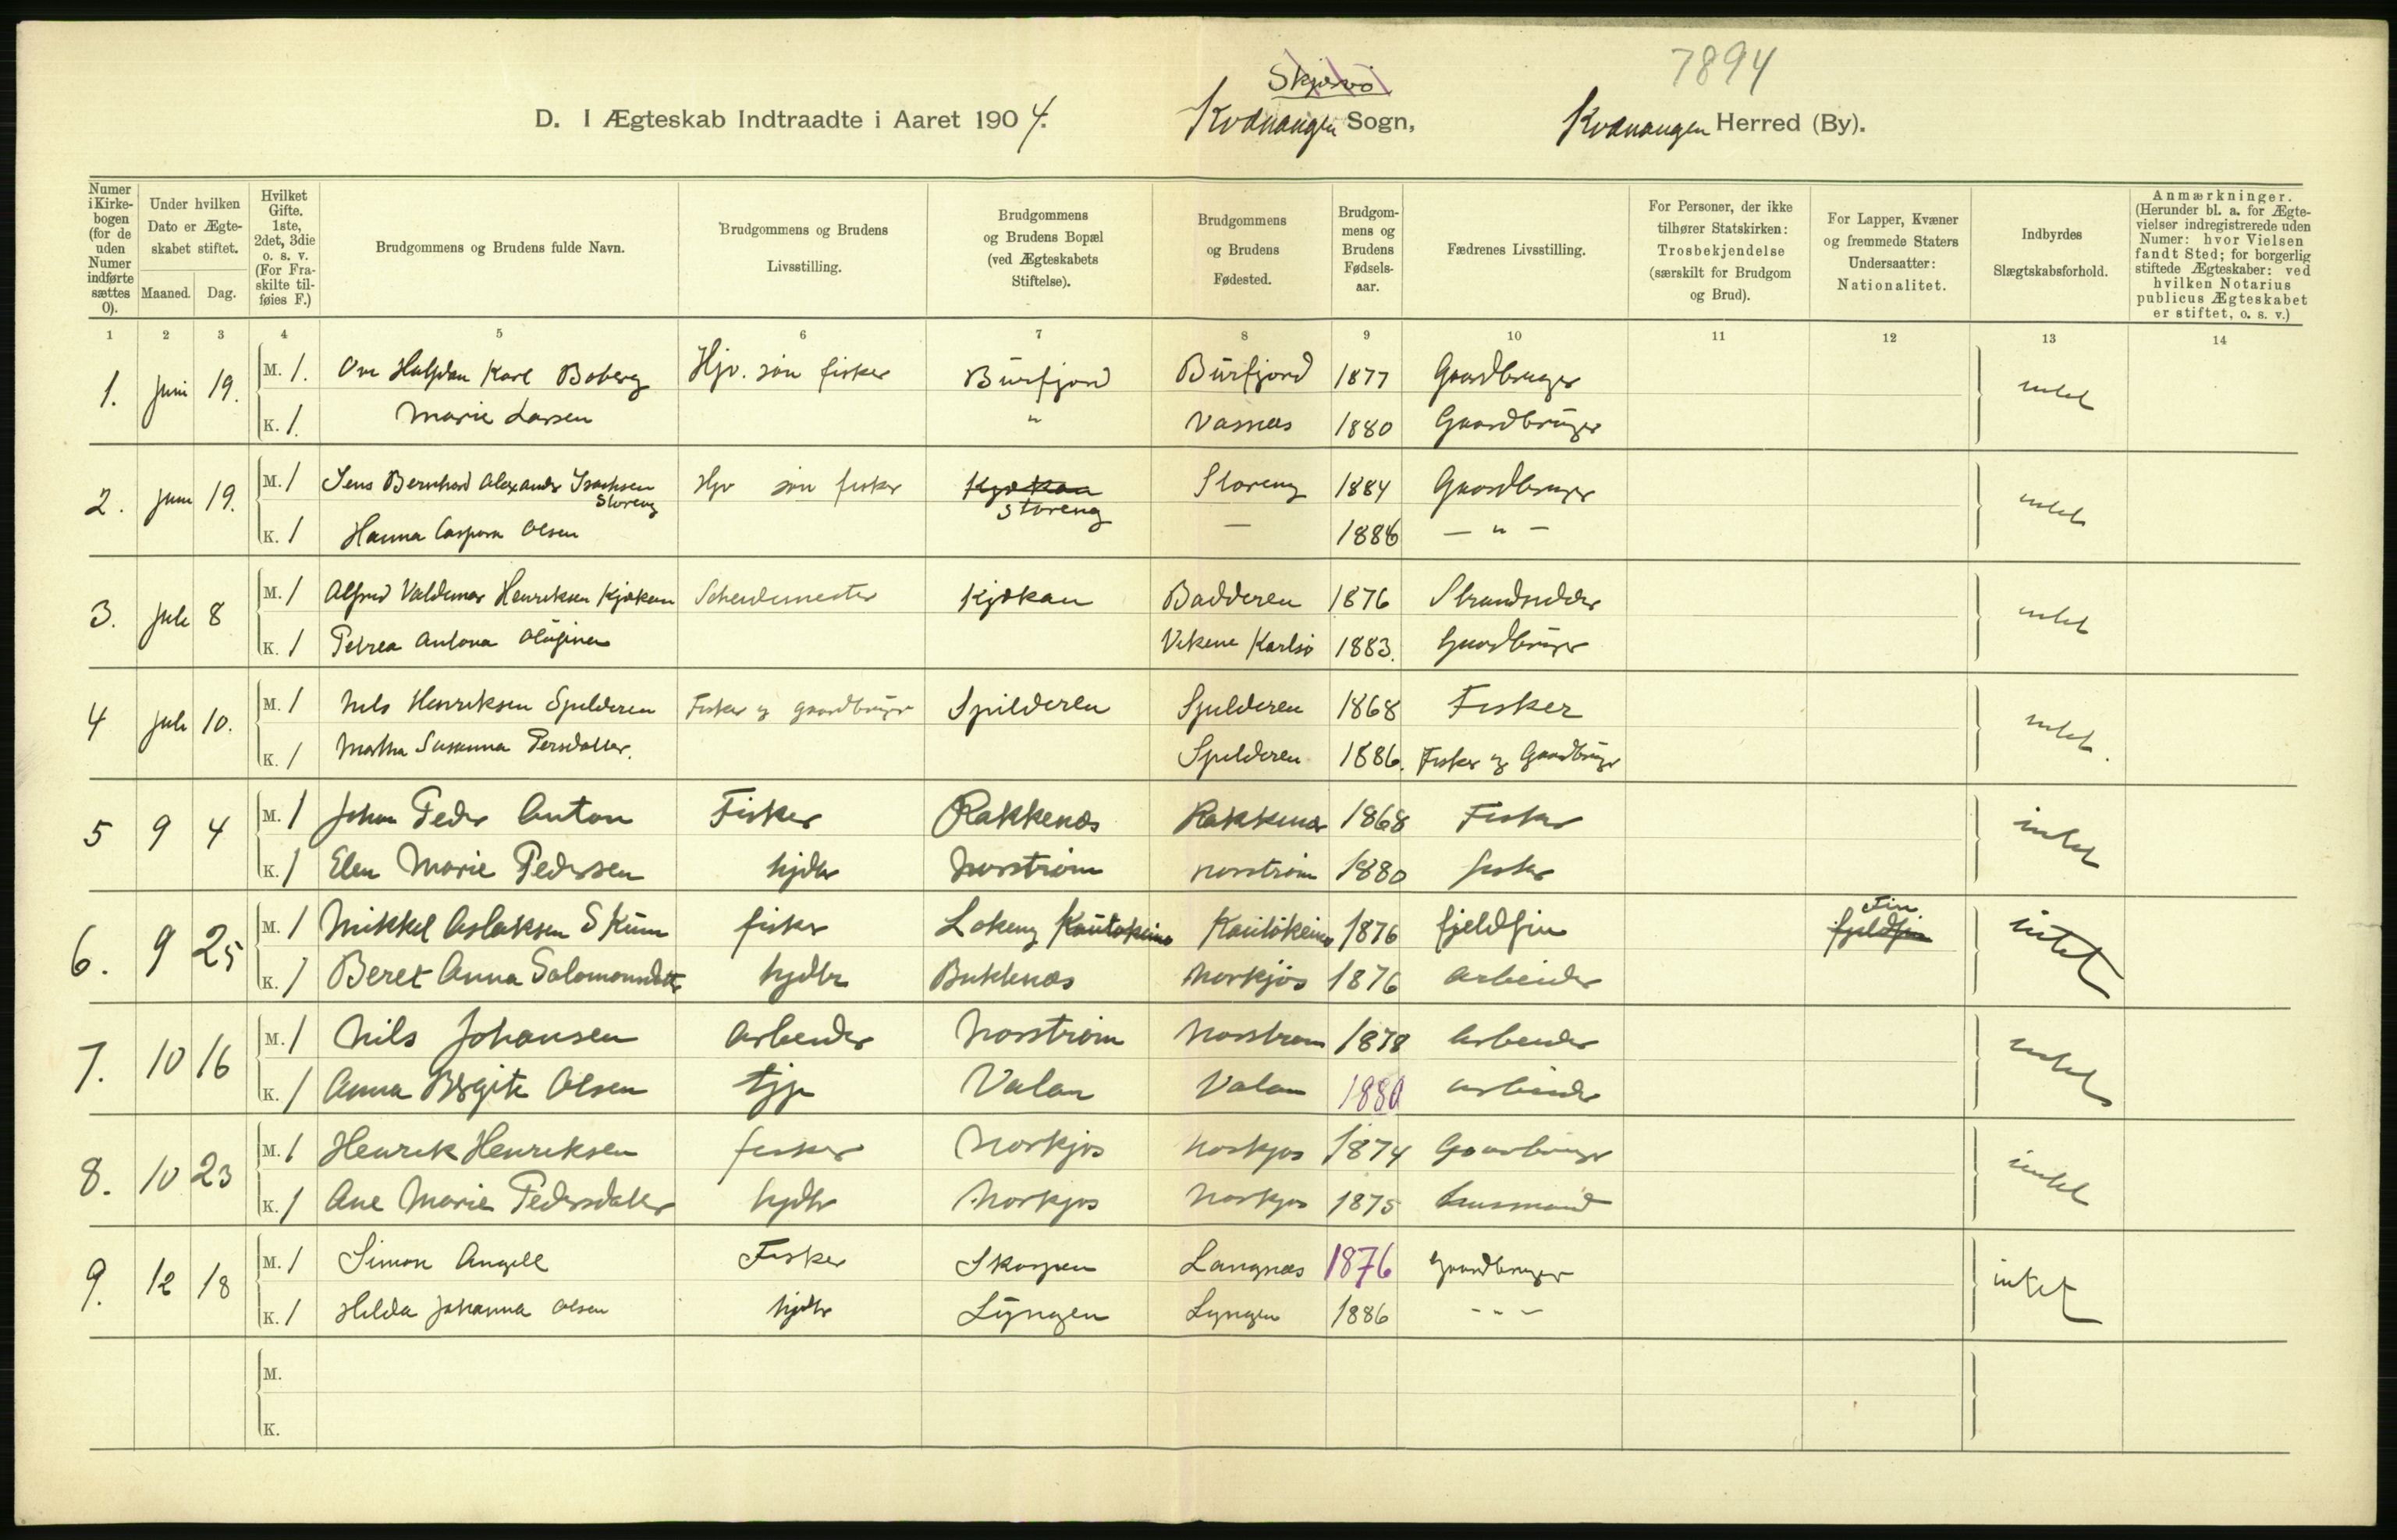 7894
Skjervø
D. I Ægteskab Indtraadte i Aaret 1904. Kvænangen Sogn, Kvænangen Herred (By).
Numer i Kirkebogen (for de uden Numer indførte sættes 0).
Under hvilken Dato er Ægteskabet stiftet.
Maaned. Dag.
Hvilket Gifte. 1ste, 2det, 3die o. s. v. (For Fraskilte tilføies F.)
Brudgommens og Brudens fulde Navn.
Brudgommens og Brudens Livsstilling.
Brudgommens og Brudens Bopæl (ved Ægteskabets Stiftelse).
Brudgommens og Brudens Fødested.
Brudgommens og Brudens Fødselsaar.
Fædrenes Livsstilling.
For Personer, der ikke tilhører Statskirken: Trosbekjendelse (særskilt for Brudgom og Brud).
For Lapper, Kvæner og fremmede Staters Undersaatter: Nationalitet.
Indbyrdes Slægtskabsforhold.
Anmærkninger. (Herunder bl. a. for Ægtevielser indregistrerede uden Numer: hvor Vielsen fandt Sted; for borgerlig stiftede Ægteskaber: ved hvilken Notarius publicus Ægteskabet er stiftet, o. s. v.)
1 2 3 4 5 6 7 8 9 10 11 12 13 14
1. Juni 19. M. 1. Ove Halfdan Karl Boberg Hjv. søn fisker Burfjord Burfjord 1877 Gaardbruger intet
K. 1. Marie Larsen " Vasnæs 1880 Gaardbruger
2. Juni 19. M. 1 Jens Bernhard Alexander Isachsen Storeng Hjv søn fisker Kjækan Storeng Storeng 1884 Gaardbruger intet
K. 1 Hanna Caspara Olsen — 1886 — " —
3. Juli 8 M. 1 Alfred Valdemar Henriksen Kjækan Kjækan Badderen 1876 Strandsidder intet
K. 1 Petrea Antona Karlsø 1883. Gaardbruger
4 Juli 10. M. 1 Nils Henriksen Spilderen Fisker og gaardbruger Spilderen Spilderen 1868 Fisker intet.
K. 1 Martha Susanna Persdatter. Spilderen 1886. Fisker og Gaardbruger
5 9 4 M. 1 Johan Peder Anton Fisker Rakkenæs Rakkenæs 1868 Fisker intet
K. 1 Elen Marie Pedersen hjdtr Norstrøm Norstrøm 1880 fisker
6. 9 25 M. 1 Mikkel Aslaksen Skum fisker Lokeng Kautokeino Kautokeino 1876 fjeldfin Fin fjeldfin intet
K. 1 Beret Anna Salomonsdatter hjdtr Buktenæs Norkjos 1876 arbeider
7. 10 16 M. 1 Nils Johansen Arbeider Norstrøm Norstrøm 1878 Arbeider intet
K. 1 Anna Birgite Olsen tjp Valan Valan 1880 arbeider
8. 10 23 M. 1 Henrik Henriksen fisker Norkjos Norkjos 1874 Gaardbruger intet
K. 1 Ane Marie Pedersdatter hjdtr Norkjos Norkjos 1875 husmand
9. 12 18 M. 1 Simon Angell Fisker Skorpen Langnæs 1876 gaardbruger intet
K. 1 Hilda Johanna Olsen hjdtr Lyngen Lyngen 1886 - " -
M.
K.